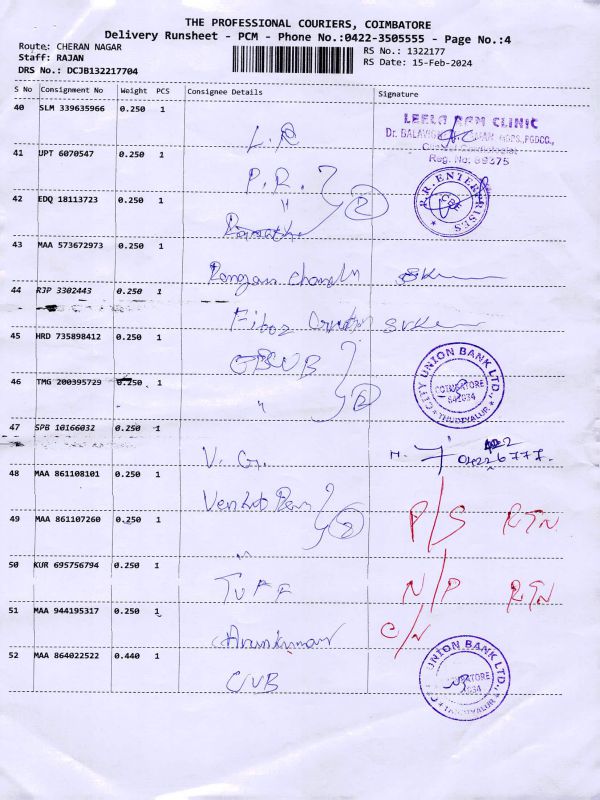 THE PROFESSIONAL COURIERS, COIMBATORE
Delivery Runsheet - PCM - Phone No.:0422-3505555 - Page No.:4
Route: CHERAN NAGAR
RS No.: 1322177
Staff: RAJAN
RS Date: 15-Feb-2024
DRS No.: DCJB132217704
S No Consignment No Weight PCS Consignee Details Signature
40 SLM 339635966 0.250 1
L.R
LEELA RAM CLINIC
Reg. No: 89375
41 UPT 6070547 0.250 1
P.R. 2
R.R. ENTERPRISES
CBE
42 EDQ 18113723 0.250 1
"
43 MAA 573672973 0.250 1
44 RJP 3302443 0.250 1
45 HRD 735898412 0.250 1
CUB
CITY UNION BANK LTD.
COIMBATORE
641034
THUDIYALUR
46 TMG 200395729 0.250 1
" 2
47 SPB 10166032 0.250 1
V. G.
48 MAA 861108101 0.250 1
P/S RTN
49 MAA 861107260 0.250 1
" 2
50 KUR 695756794 0.250 1
TUFF N/P RTN
51 MAA 944195317 0.250 1
Arunkumar
C/N
52 MAA 864022522 0.440 1
CUB
CITY UNION BANK LTD.
THUDIYALUR